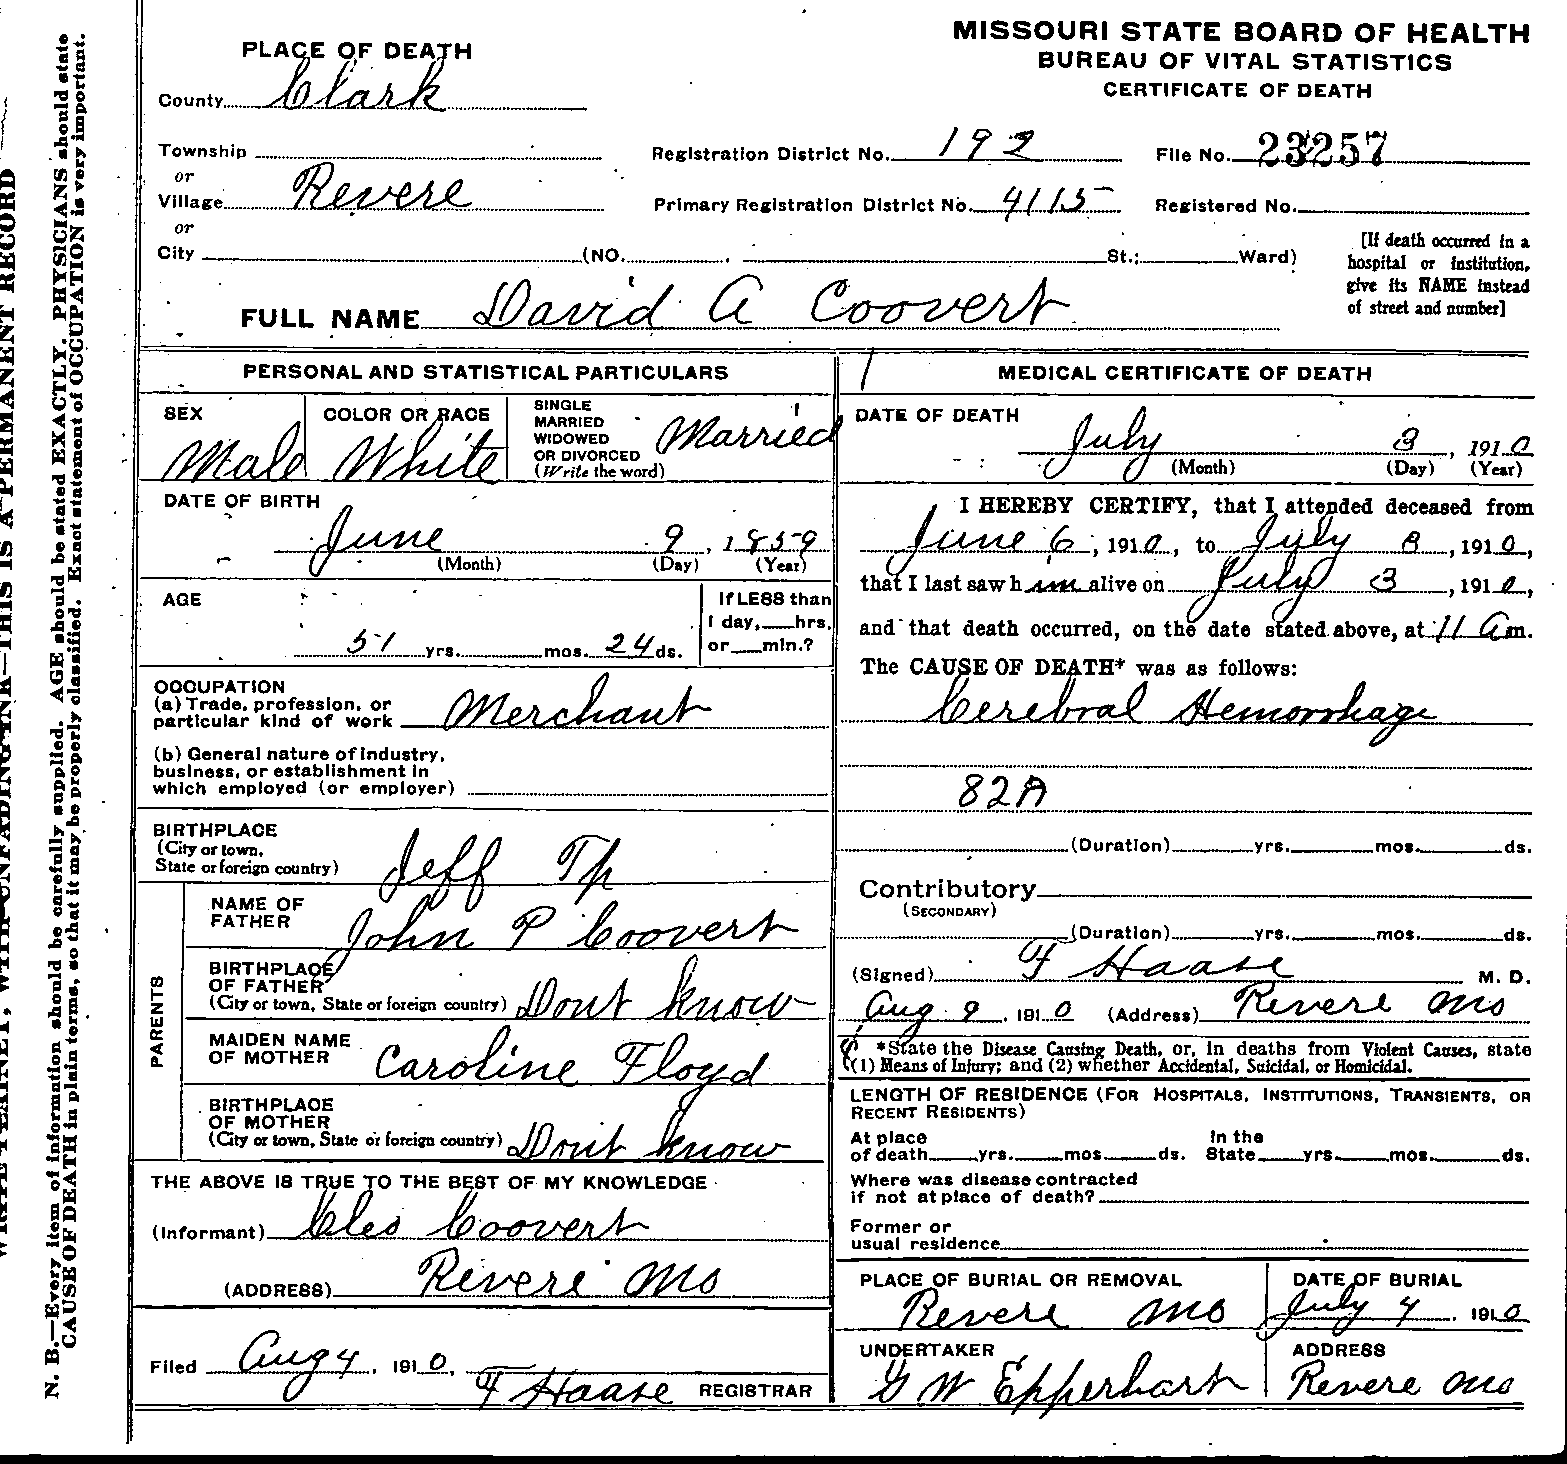 MISSOURI STATE BOARD OF HEALTH
BUREAU OF VITAL STATISTICS
CERTIFICATE OF DEATH
PLACE OF DEATH
County Clark
Township
or
Village Revere
or
City (NO. St.; Ward)
Registration District No. 192
File No. 23257
Primary Registration District No. 4115
Registered No.
[If death occurred in a
hospital or institution,
give its NAME instead
of street and number]
FULL NAME David A Coovert
PERSONAL AND STATISTICAL PARTICULARS
SEX
Male
COLOR OR RACE
White
SINGLE
MARRIED
WIDOWED
OR DIVORCED
(Write the word)
Married
DATE OF BIRTH
June 9, 1859
(Month) (Day) (Year)
AGE
51 yrs. mos. 24 ds.
If LESS than
1 day, hrs.
or min.?
OCCUPATION
(a) Trade, profession, or
particular kind of work Merchant
(b) General nature of industry,
business, or establishment in
which employed (or employer)
BIRTHPLACE
(City or town,
State or foreign country) Jeff Tp
PARENTS
NAME OF
FATHER John P Coovert
BIRTHPLACE
OF FATHER
(City or town, State or foreign country) Dont know
MAIDEN NAME
OF MOTHER Caroline Floyd
BIRTHPLACE
OF MOTHER
(City or town, State or foreign country) Dont know
THE ABOVE IS TRUE TO THE BEST OF MY KNOWLEDGE
(Informant) Cleo Coovert
(ADDRESS) Revere Mo
Filed Aug 4, 1910,
F Haase REGISTRAR
MEDICAL CERTIFICATE OF DEATH
DATE OF DEATH
July 3, 1910
(Month) (Day) (Year)
I HEREBY CERTIFY, that I attended deceased from
June 6, 1910, to July 3, 1910,
that I last saw him alive on July 3, 1910,
and that death occurred, on the date stated above, at 11 am.
The CAUSE OF DEATH* was as follows:
Cerebral Hemorrhage
82A
(Duration) yrs. mos. ds.
Contributory
(SECONDARY)
(Duration) yrs. mos. ds.
(Signed) F Haase M. D.
Aug 9, 1910 (Address) Revere Mo
*State the Disease Causing Death, or, in deaths from Violent Causes, state
(1) Means of Injury; and (2) whether Accidental, Suicidal, or Homicidal.
LENGTH OF RESIDENCE (FOR HOSPITALS, INSTITUTIONS, TRANSIENTS, OR
RECENT RESIDENTS)
At place
of death yrs. mos. ds.
In the
State yrs. mos. ds.
Where was disease contracted
if not at place of death?
Former or
usual residence
PLACE OF BURIAL OR REMOVAL
Revere Mo
DATE OF BURIAL
July 4, 1910
UNDERTAKER
G W Epperhart
ADDRESS
Revere Mo
UNFADING INK—THIS IS A PERMANENT RECORD
N. B.—Every item of information should be carefully supplied. AGE should be stated EXACTLY. PHYSICIANS should state
CAUSE OF DEATH in plain terms, so that it may be properly classified. Exact statement of OCCUPATION is very important.